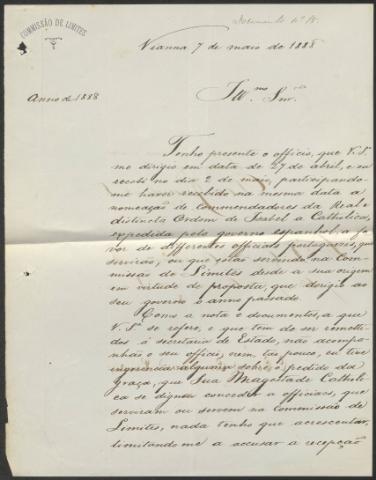 COMMISSÃO DE LIMITES
Documento nº 8.
Vianna 7 de maio de 1888
Anno de 1888
Illmo. Snr.
Tenho presente o officio, que V. Sª
me dirigio em data de 27 de abril, e eu
recebi no dia 2 de maio, participando-
me haver recebido na mesma data a
nomeação de Commendadores da Real e
distincta Ordem de Isabel a Catholica,
expedida pelo governo espanhol a fa
vor de differentes officiaes portuguezes, que
servirão, ou que estão servindo na Com-
missão de Limites desde a sua origem
em virtude de proposta, que dirigio ao
seu governo o anno passado.
Como a nota e documentos, a que
V. Sª se refere, e que tem de ser remetti-
dos á secretaria de Estado, não acompa-
nhão o seu officio, nem tão pouco, eu tive
ingerencia alguma sobre o pedido da
graça, que Sua Magestade Catholi
ca se dignou conceder a officiaes, que
serviram ou servem na Commissão de
Limites, nada tenho que acrescentar,
limitando me a accusar a recepção